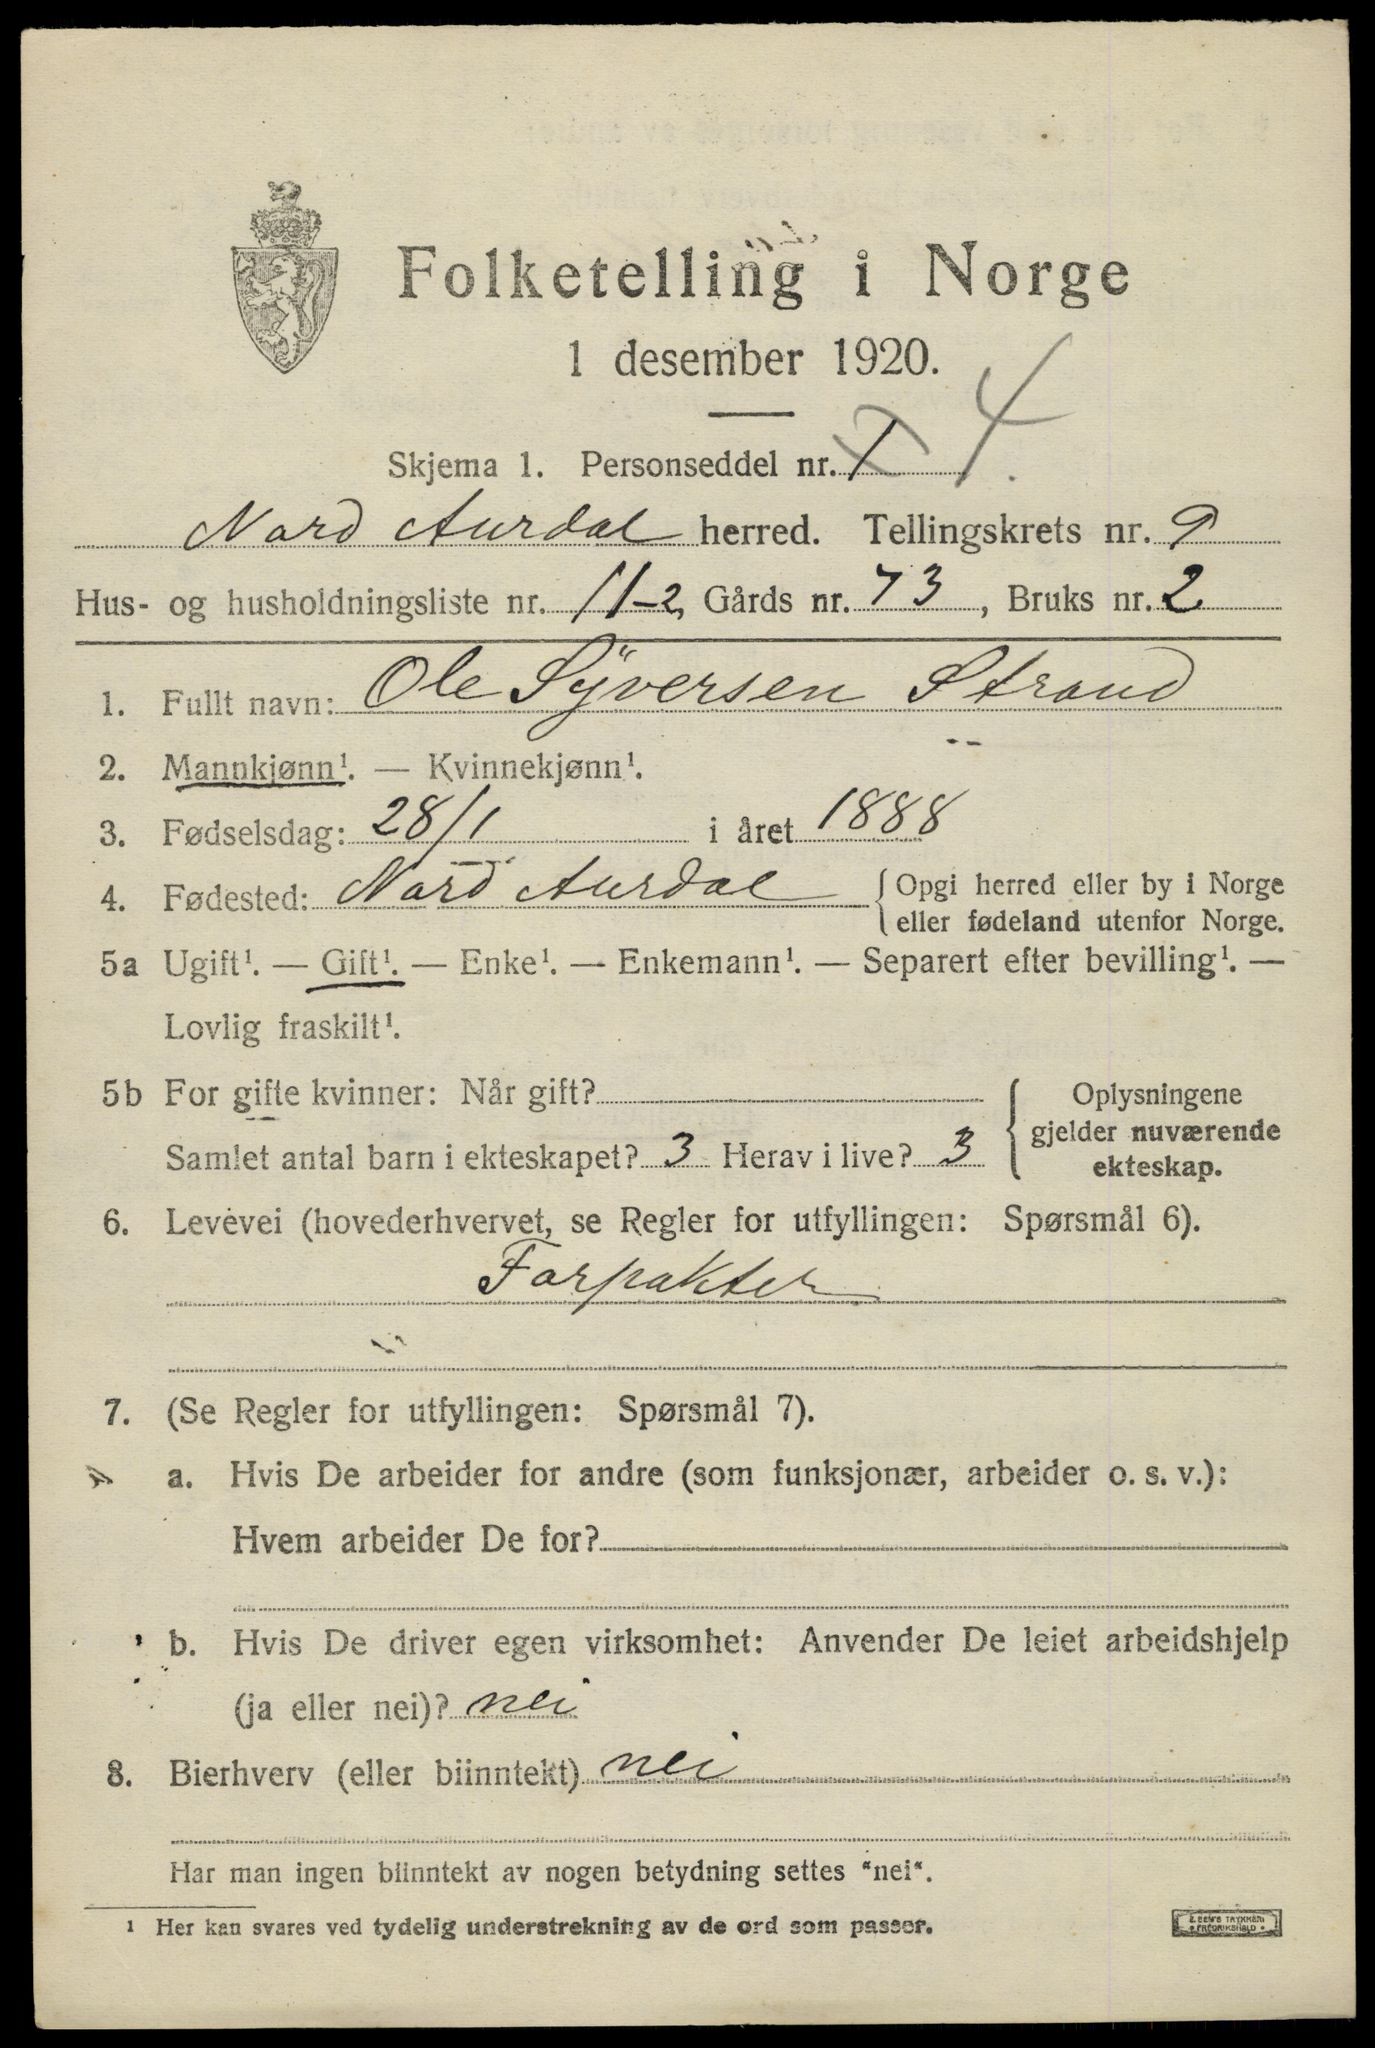 Folketelling i Norge
1 desember 1920.
Skjema 1. Personseddel nr. 1 4
Nord Aurdal herred. Tellingskrets nr. 9
Hus- og husholdningsliste nr. 11-2, Gårds nr. 73, Bruks nr. 2
1. Fullt navn: Ole Syversen Strand
2. Mannkjønn¹. — Kvinnekjønn¹.
3. Fødselsdag: 28/1 i året 1888
4. Fødested: Nord Aurdal { Opgi herred eller by i Norge
eller fødeland utenfor Norge.
5a Ugift¹. — Gift¹. — Enke¹. — Enkemann¹. — Separert efter bevilling¹. —
Lovlig fraskilt¹.
5b For gifte kvinner: Når gift?
Samlet antal barn i ekteskapet? 3 Herav i live? 3
{ Oplysningene
gjelder nuværende
ekteskap.
6. Levevei (hovederhvervet, se Regler for utfyllingen: Spørsmål 6).
Forpakter
7. (Se Regler for utfyllingen: Spørsmål 7).
a. Hvis De arbeider for andre (som funksjonær, arbeider o. s. v.):
Hvem arbeider De for?
b. Hvis De driver egen virksomhet: Anvender De leiet arbeidshjelp
(ja eller nei)? nei
8. Bierhverv (eller biinntekt) nei
Har man ingen biinntekt av nogen betydning settes "nei".
¹ Her kan svares ved tydelig understrekning av de ord som passer.
E. SEM'S TRYKKERI
FREDRIKSHALD